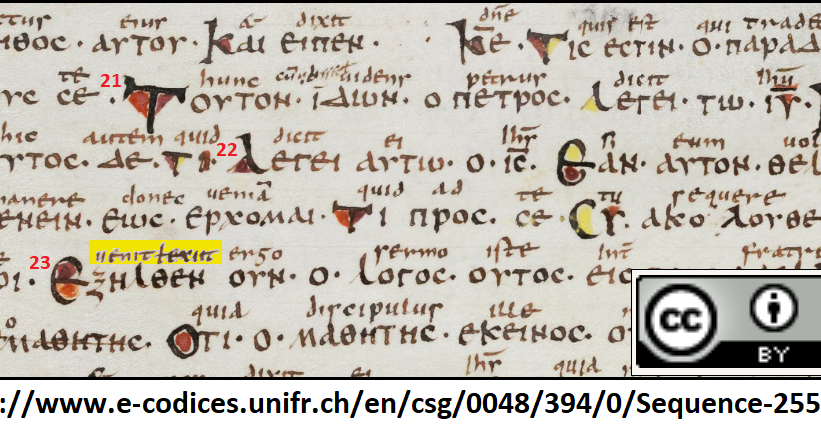 ctus eius & dixit dn̄e quis est qui trade
ΗΘΟC · ΑΥΤΟΥ · ΚΑΙ ΕΙΠΕΝ · Κ̅Ε̅ · ΤΙC ΕCΤΙΝ · Ο · ΠΑΡΑΔ
te hunc uidens petrus dicit ihū
CΕ · 21 ΤΟΥΤΟΝ · ΪΔΩΝ · Ο ΠΕΤΡΟC · ΛΕΓΕΙ · ΤΩ · Ι̅Υ̅ ·
hic autem quid dicit ei ihs̄ si eum uol
ΥΤΟC · ΔΕ · ΤΙ · 22 ΛΕΓΕΙ ΑΥΤΩ · Ο · Ι̅C̅ · ΕΑΝ · ΑΥΤΟΝ · ΘΕΛ
manere donec ueniā quid ad te tu sequere
ΕΝΕΙΝ · ΕΩC · ΕΡΧΟΜΑΙ · ΤΙ ΠΡΟC · CΕ · CΥ · ΑΚΟΛΟΥΘΕ
uenit ł exiit ergo sermo iste int̄ fratre
23 ΕΞΗΛΘΕΝ ΟΥΝ · Ο · ΛΟΓΟC · ΟΥΤΟC · ΕΙC
quia discipulus ille
ΜΑΘΗΤΗC · ΟΤΙ · Ο · ΜΑΘΗΤΗC · ΕΚΕΙΝΟC · Ο
dixit ei ihs̄ quia
cc BY
://www.e-codices.unifr.ch/en/csg/0048/394/0/Sequence-255